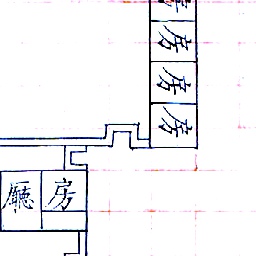 房
房
房
房
廳房